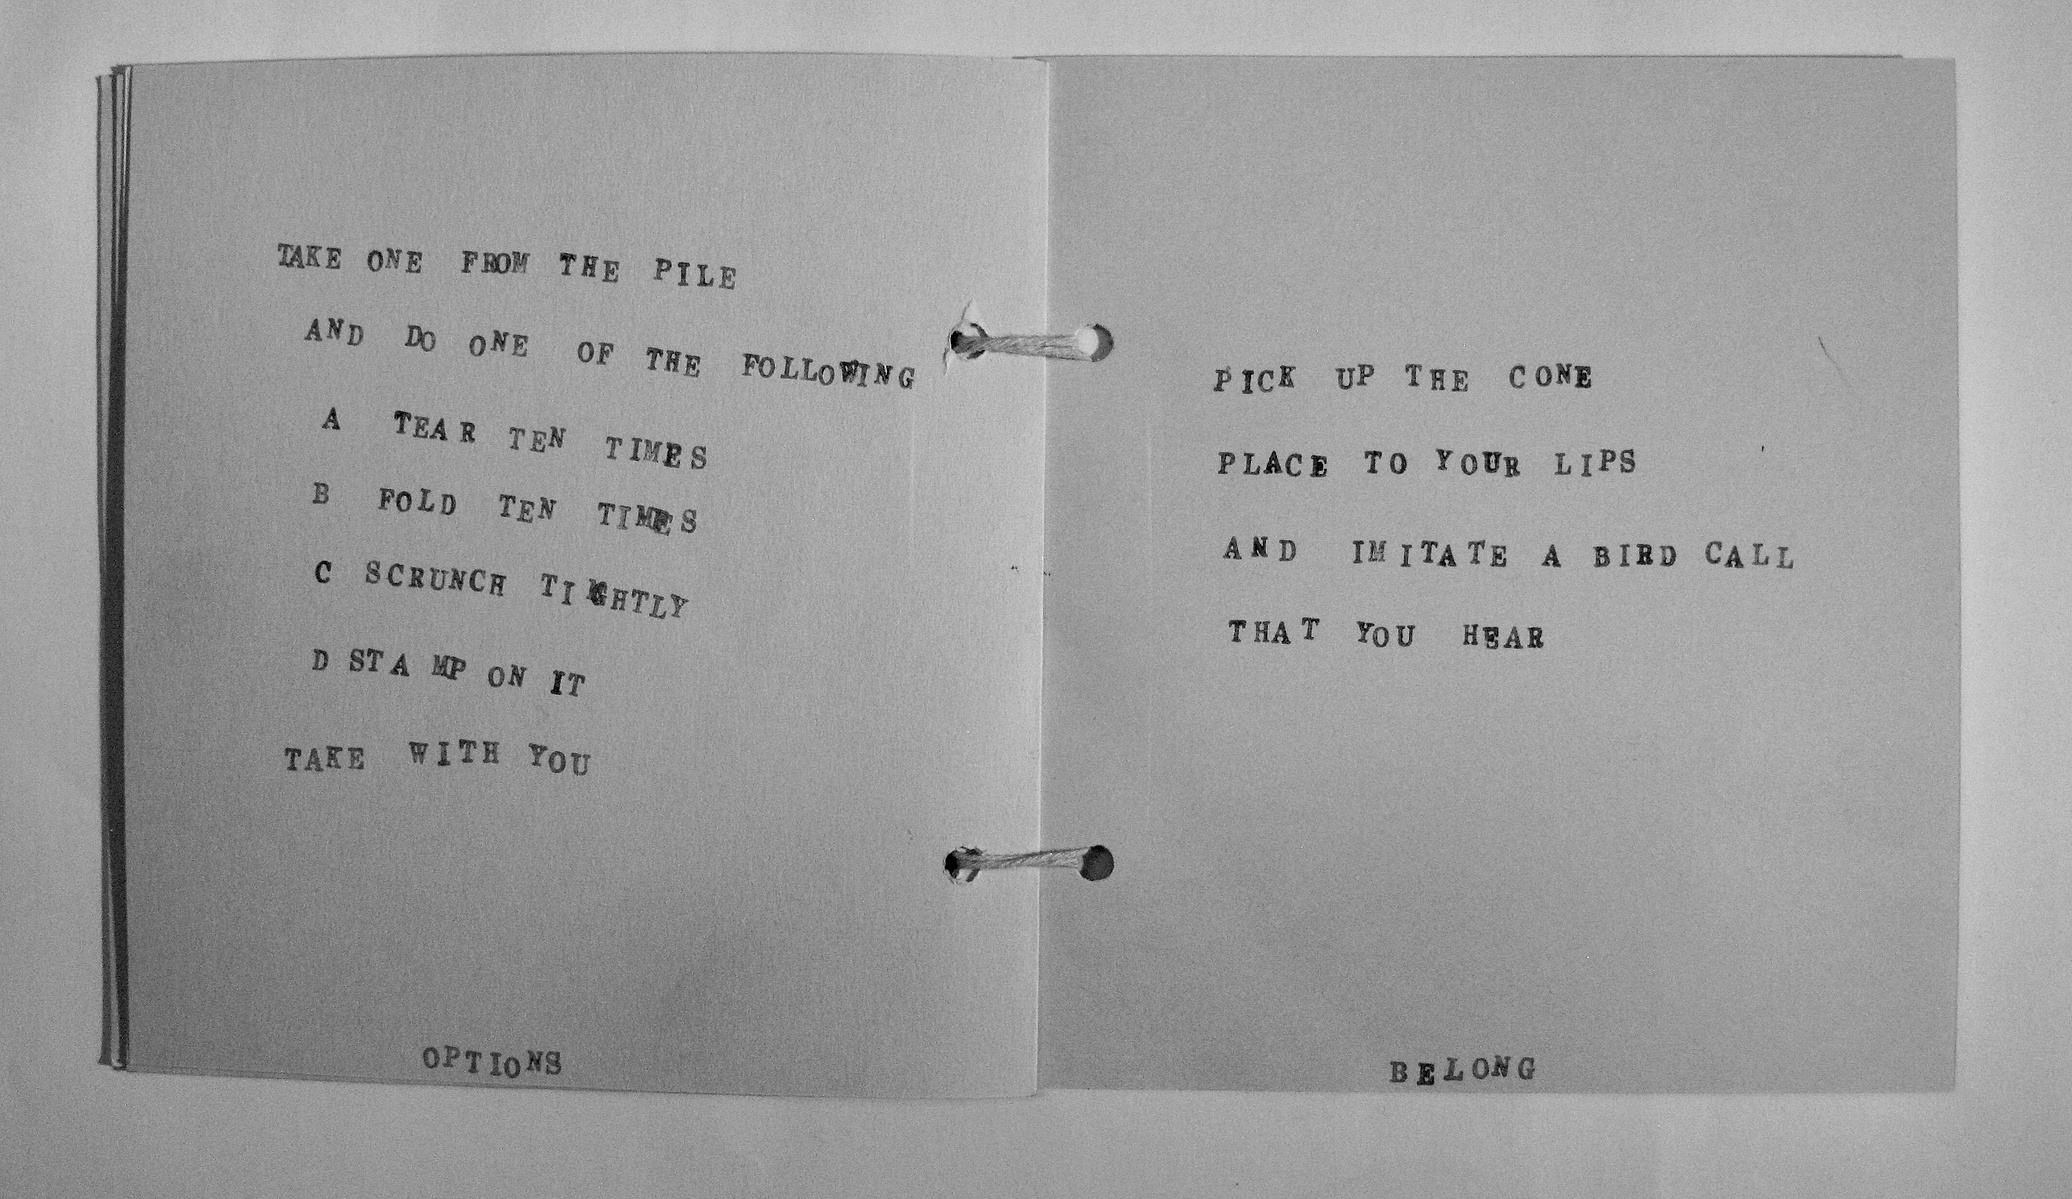 TAKE ONE FROM THE PILE
AND DO ONE OF THE FOLLOWING
A TEAR TEN TIMES
B FOLD TEN TIMES
C SCRUNCH TIGHTLY
D STAMP ON IT
TAKE WITH YOU
OPTIONS
PICK UP THE CONE
PLACE TO YOUR LIPS
AND IMITATE A BIRD CALL
THAT YOU HEAR
BELONG